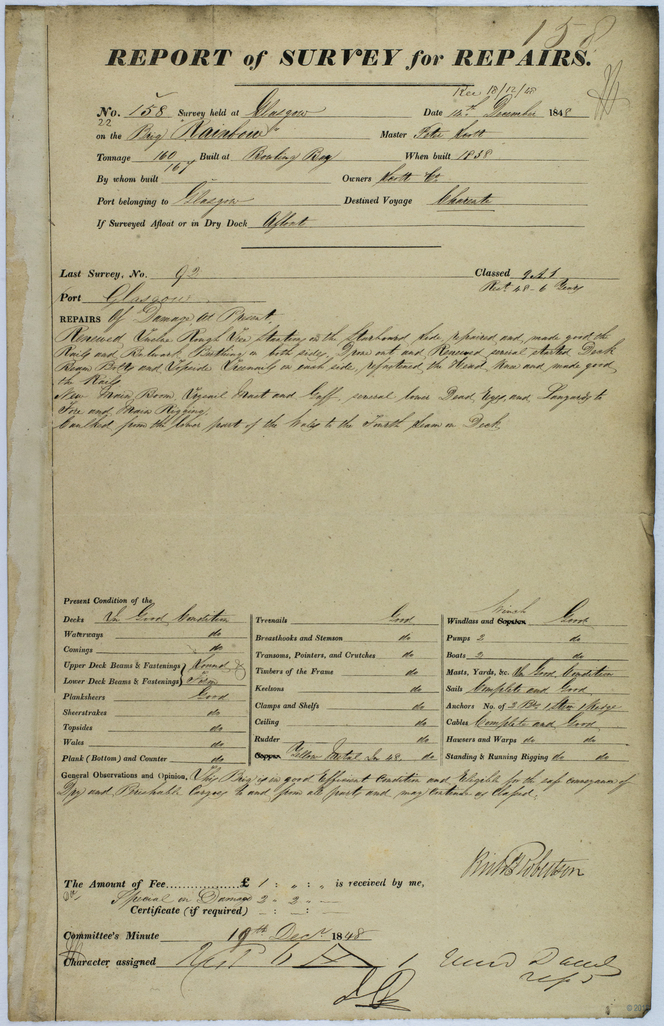 158
REPORT of SURVEY for REPAIRS.
Rec 18/12/48
No. 158 Survey held at Glasgow Date 14th December 1848
22
on the Brig Rainbow Master Peter Scott
Tonnage 160 Built at Bowling Bay When built 1838
167
By whom built Owners Scott & Co
Port belonging to Glasgow Destined Voyage Charente
If Surveyed Afloat or in Dry Dock Afloat
Last Survey, No. 92 Classed 9A1
Port Glasgow Rest. 48 - 6 Years
REPAIRS Of Damage, as Present
Renewed Twelve Rough Tree Stantions on the Starboard Side, repaired and made good the
Rails and Bulwark Birthing on both sides, Drove out and Renewed several started Deck
Beam Bolts and Topside Treenails on each side, refastened the Head, and made good
the Rails
New Main Boom, Trysail Mast and Gaff, several lower Dead Eyes, and Lanyards to
Fore and Main Rigging.
Caulked from the lower part of the Wales to the Fourth seam on Deck
Present Condition of the
Decks In Good Condition
Waterways do
Comings do
Upper Deck Beams & Fastenings } Sound &
Lower Deck Beams & Fastenings }
Planksheers Good
Sheerstrakes do
Topsides do
Wales do
Plank (Bottom) and Counter do
Treenails Good
Breasthooks and Stemson do
Transoms, Pointers, and Crutches do
Timbers of the Frame do
Keelsons do
Clamps and Shelfs do
Ceiling do
Rudder do
Copper Yellow Metal In 48 do
Winch
Windlass and Capstan Good
Pumps 2 do
Boats 2 do
Masts, Yards, &c. In Good Condition
Sails Complete and Good
Anchors No. of 2 Brs 1 Strm 1 Kedge
Cables Complete and Good
Hawsers and Warps do do
Standing & Running Rigging do do
General Observations and Opinion, This Brig is in good Efficient Condition and Eligible for the safe conveyance of
Dry and Perishable Cargoes to and from all parts, and may continue as Classed.
Robertson
The Amount of Fee £ 1 : „ : „ is received by me,
Special on Damage 2 - 2 : —
Certificate (if required) - : - : -
Committee's Minute 19th Decr 1848
Character assigned
© 20